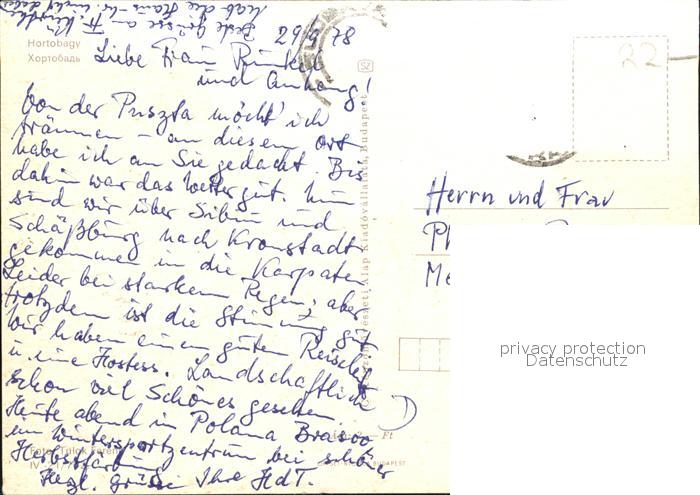 Beste Grüsse an Fr.
29/9 78
Hortobagy
Хортобадь
Liebe Frau Runkel
und Anhang!
Von der Puszta möcht' ich
träumen – an diesem Ort
habe ich an Sie gedacht. Bis
dahin war das Wetter gut. Nun
sind wir über Sibiu und
Schäßburg nach Kronstadt
gekommen in die Karpaten
Leider bei starkem Regen; aber
trotzdem ist die Stimmung gut
Wir haben einen guten Reiseleit
u. eine Hostess. Landschaftlich
schon viel Schönes gesehen.
Heute abend in Polana Brasov
ein Wintersportzentrum bei schöner
Herbstfärbung
Herzl. Grüße Ihre HdT.
SZ
Alap Kiadóvállalata, Budapest
22
Herrn und Frau
Me
Ft
BUDAPEST
privacy protection
Datenschutz